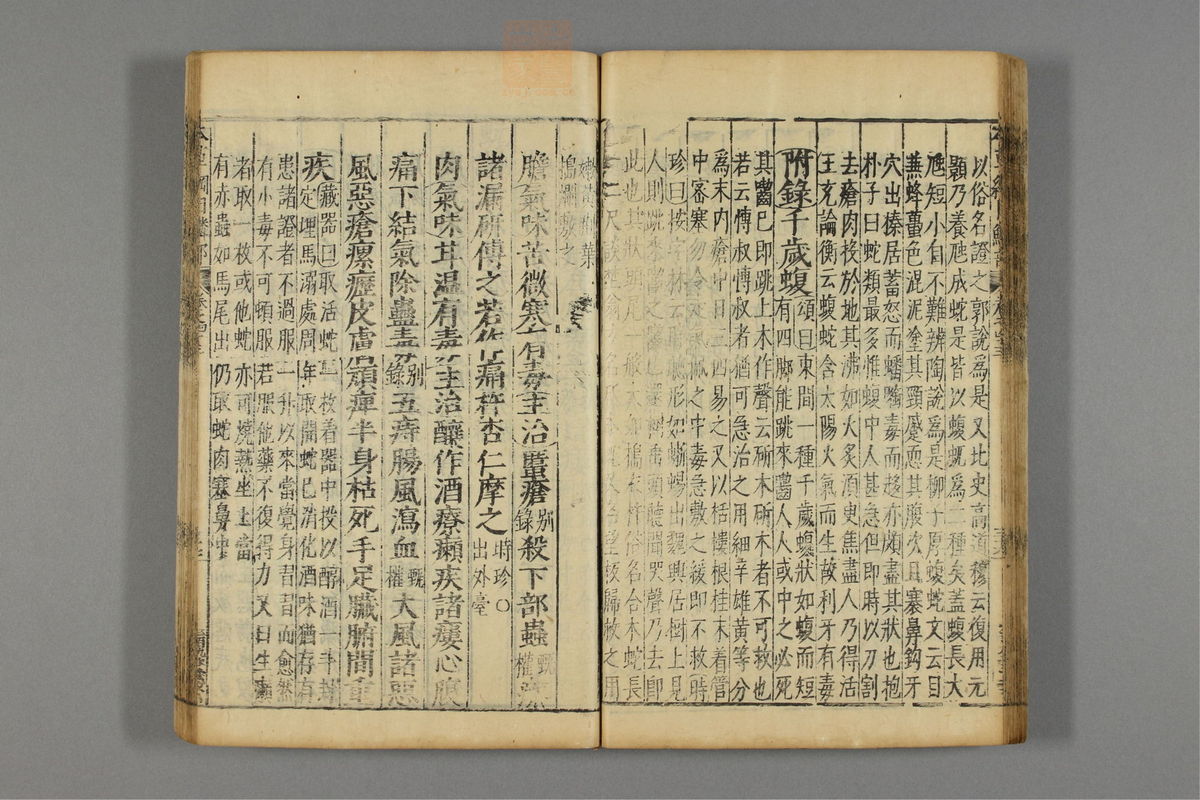 以俗名證之郭說為是又北史高道穆云復用元
顥乃養虺成蛇是皆以蝮虺為二種矣蓋蝮長大
虺短小自不難辨陶說為是柳子厚蝮蛇文云目
兼蜂蠆色混泥塗其頸蹙恧其腹次且褰鼻鈎牙
穴出榛居蓄怒而蟠噛毒而趨亦頗盡其狀也抱
朴子曰蛇類最多惟蝮中人甚急但即時以刀割
去瘡肉投於地其沸如火炙須臾焦盡人乃得活
王充論衡云蝮蛇含太陽火氣而生故利牙有毒
附錄千歲蝮
頌曰東間一種千歲蝮狀如蝮而短
有四脚能跳來齧人人或中之必死
其齧已即跳上木作聲云斫木斫木者不可救也
若云博叔博叔者猶可急治之用細辛雄黃等分
為末內瘡中日三四易之又以栝樓根桂末着管
中密塞勿令佩之中毒急敷之緩即不救時
珍曰按字林云形如蜥蜴出魏興居樹上見
人則跳來齧之樹垂頭聽聞哭聲乃去即
此也其狀頭尾一般大如搗衣杵俗名合木蛇長
一二尺
嫩苗葉
搗爛敷之
膽氣味苦微寒有毒主治䘌瘡
別
錄
殺下部蟲
甄
權
諸漏研傅之若作痛杵杏仁摩之
時珍○
出外臺
肉氣味甘溫有毒主治釀作酒療癩疾諸瘻心腹
痛下結氣除蠱毒
別
錄
五痔腸風瀉血
甄
權
大風諸惡
風惡瘡瘰癧皮膚頑痺半身枯死手足臟腑間重
疾
藏器曰取活蛇一枚着器中投以醇酒一斗封
定埋馬溺處周年取開蛇已消化酒味猶存有
患諸證者不過服一升以來當覺身習習而愈然
有小毒不可頓服若服他藥不復得力又曰生癩
者取一枚或他蛇亦可燒熱坐上當
有赤蟲如馬尾出仍取蛇肉塞鼻中